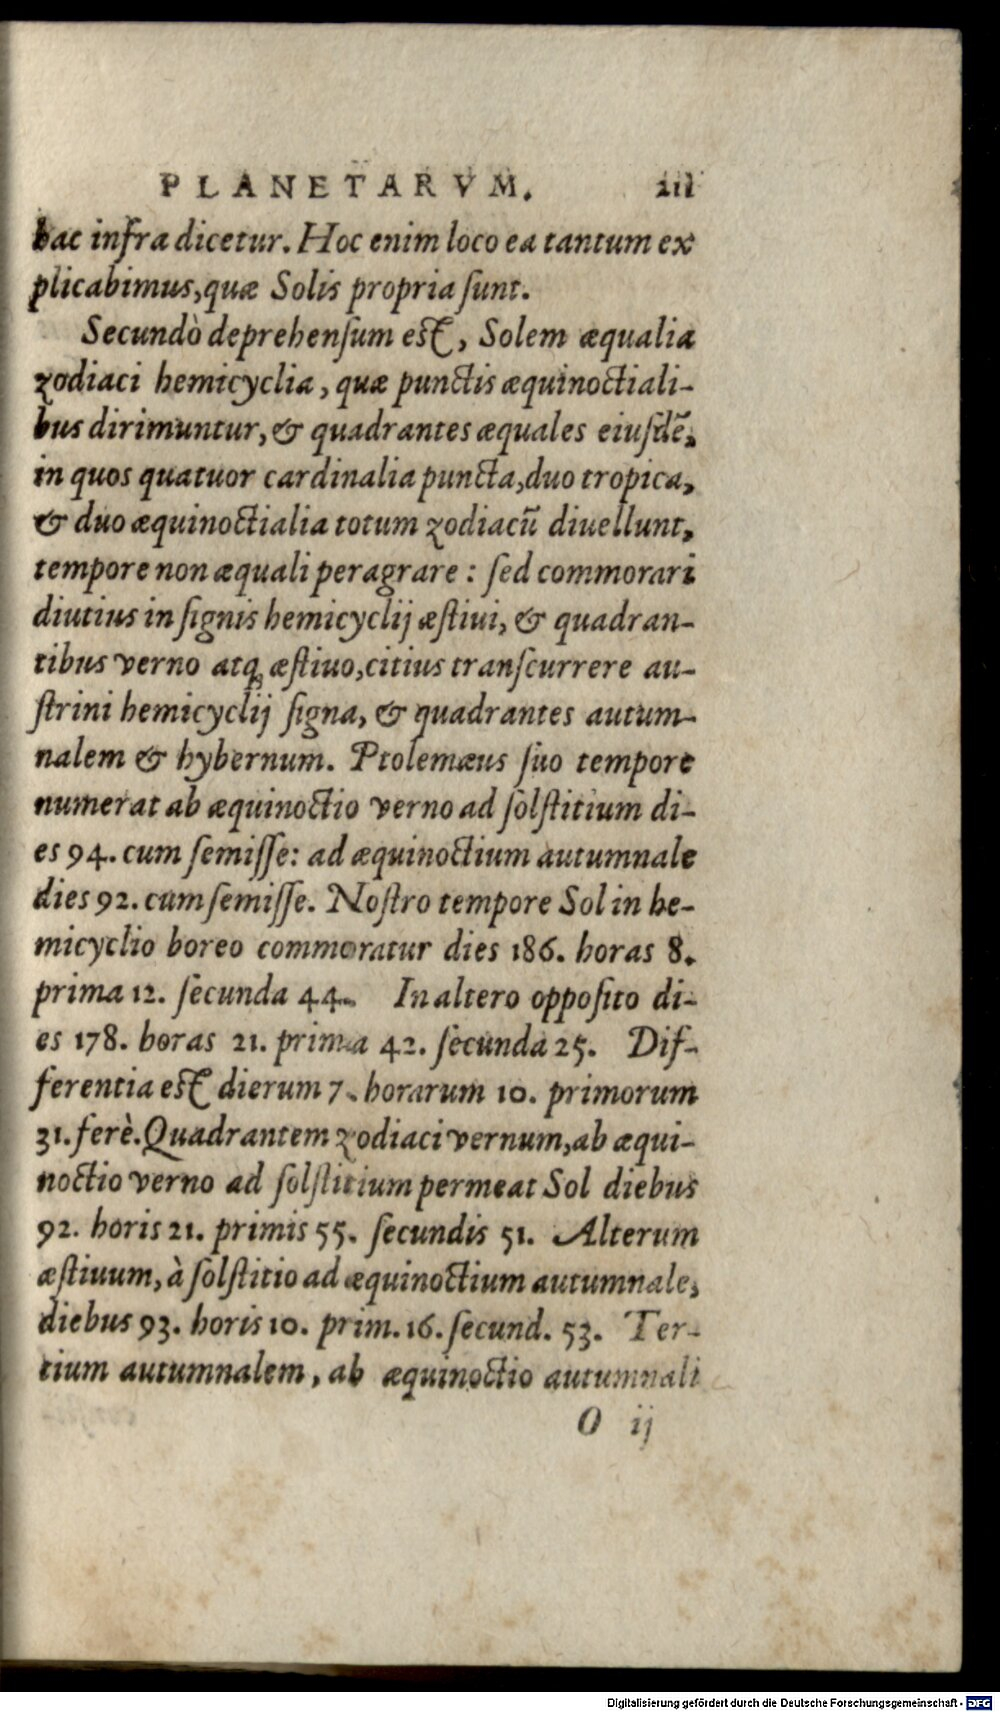 PLANETARVM. 211
hac infra dicetur. Hoc enim loco ea tantum ex
plicabimus, quæ Solis propria sunt.
Secundò deprehensum est, Solem æqualia
zodiaci hemicyclia, quæ punctis æquinoctiali-
bus dirimuntur, & quadrantes æquales eiusdē,
in quos quatuor cardinalia puncta, duo tropica,
& duo æquinoctialia totum zodiacū diuellunt,
tempore non æquali peragrare: sed commorari
diutius in signis hemicyclij æstiui, & quadran-
tibus verno atq; æstiuo, citius transcurrere au-
strini hemicyclij signa, & quadrantes autum-
nalem & hybernum. Ptolemæus suo tempore
numerat ab æquinoctio verno ad solstitium di-
es 94. cum semisse: ad æquinoctium autumnale
dies 92. cum semisse. Nostro tempore Sol in he-
micyclio boreo commoratur dies 186. horas 8.
prima 12. secunda 44. In altero opposito di-
es 178. horas 21. prima 42. secunda 25. Dif-
ferentia est dierum 7. horarum 10. primorum
31. ferè. Quadrantem zodiaci vernum, ab æqui-
noctio verno ad solstitium permeat Sol diebus
92. horis 21. primis 55. secundis 51. Alterum
æstiuum, à solstitio ad æquinoctium autumnale,
diebus 93. horis 10. prim. 16. secund. 53. Ter-
tium autumnalem, ab æquinoctio autumnali
O ij
Digitalisierung gefördert durch die Deutsche Forschungsgemeinschaft - DFG